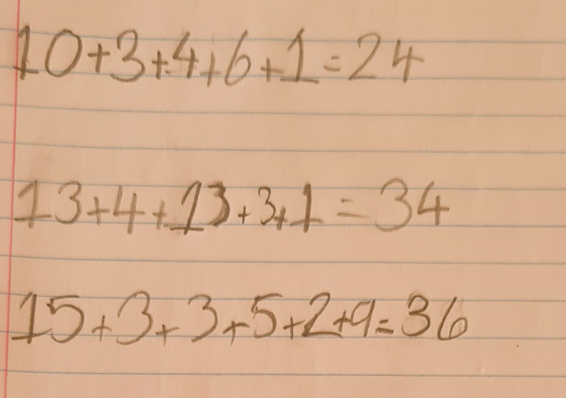 10+3+4+6+1=24
13+4+13+3+1=34
15+3+3+5+2+9=36